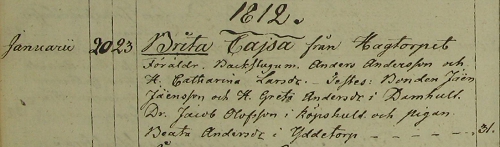 1812.
Januarii 20 23 Brita Cajsa från Hagtorpet
Föräldr. Backstugum. Anders Andersson och
H. Catharina Larsdr. – Testes: Bonden Jöen
Jöensson och H. Greta Andersdr i Damhult.
Dr. Jacob Olofsson i Köpshult och pigan
Beata Andersdr i Yddetorp – – – – – – 31.